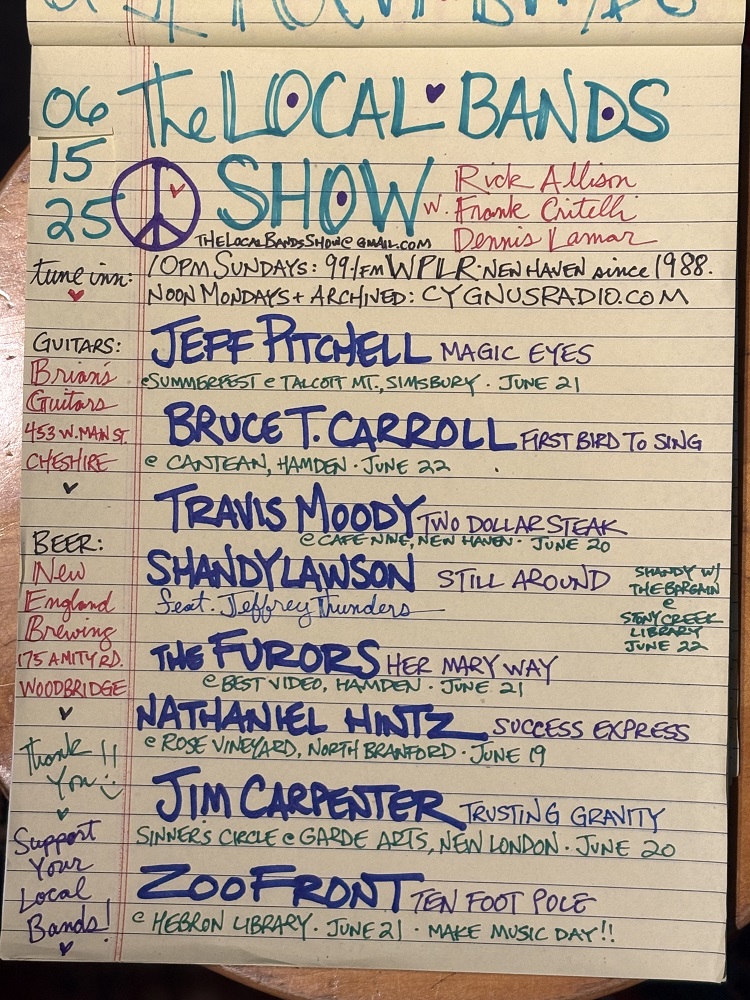 06
15
25
The LOCAL BANDS
SHOW
w. Rick Allison
Frank Critelli
Dennis Lamar
THELOCALBANDSSHOW@GMAIL.COM
tune inn:
10PM SUNDAYS: 99.1FM WPLR·NEW HAVEN since 1988.
NOON MONDAYS + ARCHIVED: CYGNUSRADIO.COM
GUITARS:
Brian's
Guitars
453 W. MAIN ST.
CHESHIRE
BEER:
New
England
Brewing
175 AMITY RD.
WOODBRIDGE
Thank
You!!
Support
Your
Local
Bands!
JEFF PITCHELL MAGIC EYES
@SUMMERFEST @ TALCOTT MT., SIMSBURY · JUNE 21
BRUCE T. CARROLL FIRST BIRD TO SING
@ CANTEAN, HAMDEN · JUNE 22
TRAVIS MOODY TWO DOLLAR STEAK
@ CAFE NINE, NEW HAVEN · JUNE 20
SHANDY LAWSON STILL AROUND
feat. Jeffrey Thunders
SHANDY W/
THE BARGAIN
@
STONY CREEK
LIBRARY
JUNE 22
THE FURORS HER MARY WAY
@ BEST VIDEO, HAMDEN · JUNE 21
NATHANIEL HINTZ SUCCESS EXPRESS
@ ROSE VINEYARD, NORTH BRANFORD · JUNE 19
JIM CARPENTER TRUSTING GRAVITY
SINNER'S CIRCLE @ GARDE ARTS, NEW LONDON · JUNE 20
ZOO FRONT TEN FOOT POLE
@ HEBRON LIBRARY · JUNE 21 · MAKE MUSIC DAY!!